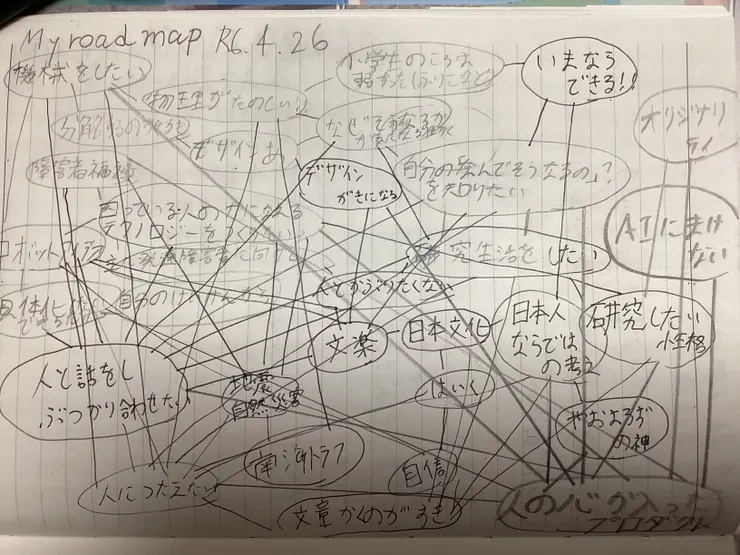 My road map R6.4.26
機械をしたい
小学生のころは
いまなら
できる!!
物理がたのしい
オリジナリ
ティ
デザイン
がきになる
自分の
でそうなるの?
を知りたい
障害者福祉
困っている人の力になれる
テクノロジーをつくりたい
AIにまけ
ない
ロボット
研究生活をしたい
人とかぶりたくない
文楽
日本文化
日本人
ならでは
の考え
研究したい
性格
人と話をし
ぶつかり合わせたい
地震
自然災害
はいく
やおよろず
の神
南海トラフ
自信
人につたえたい
文章かくのがすき
人の心が入った
プロダクト